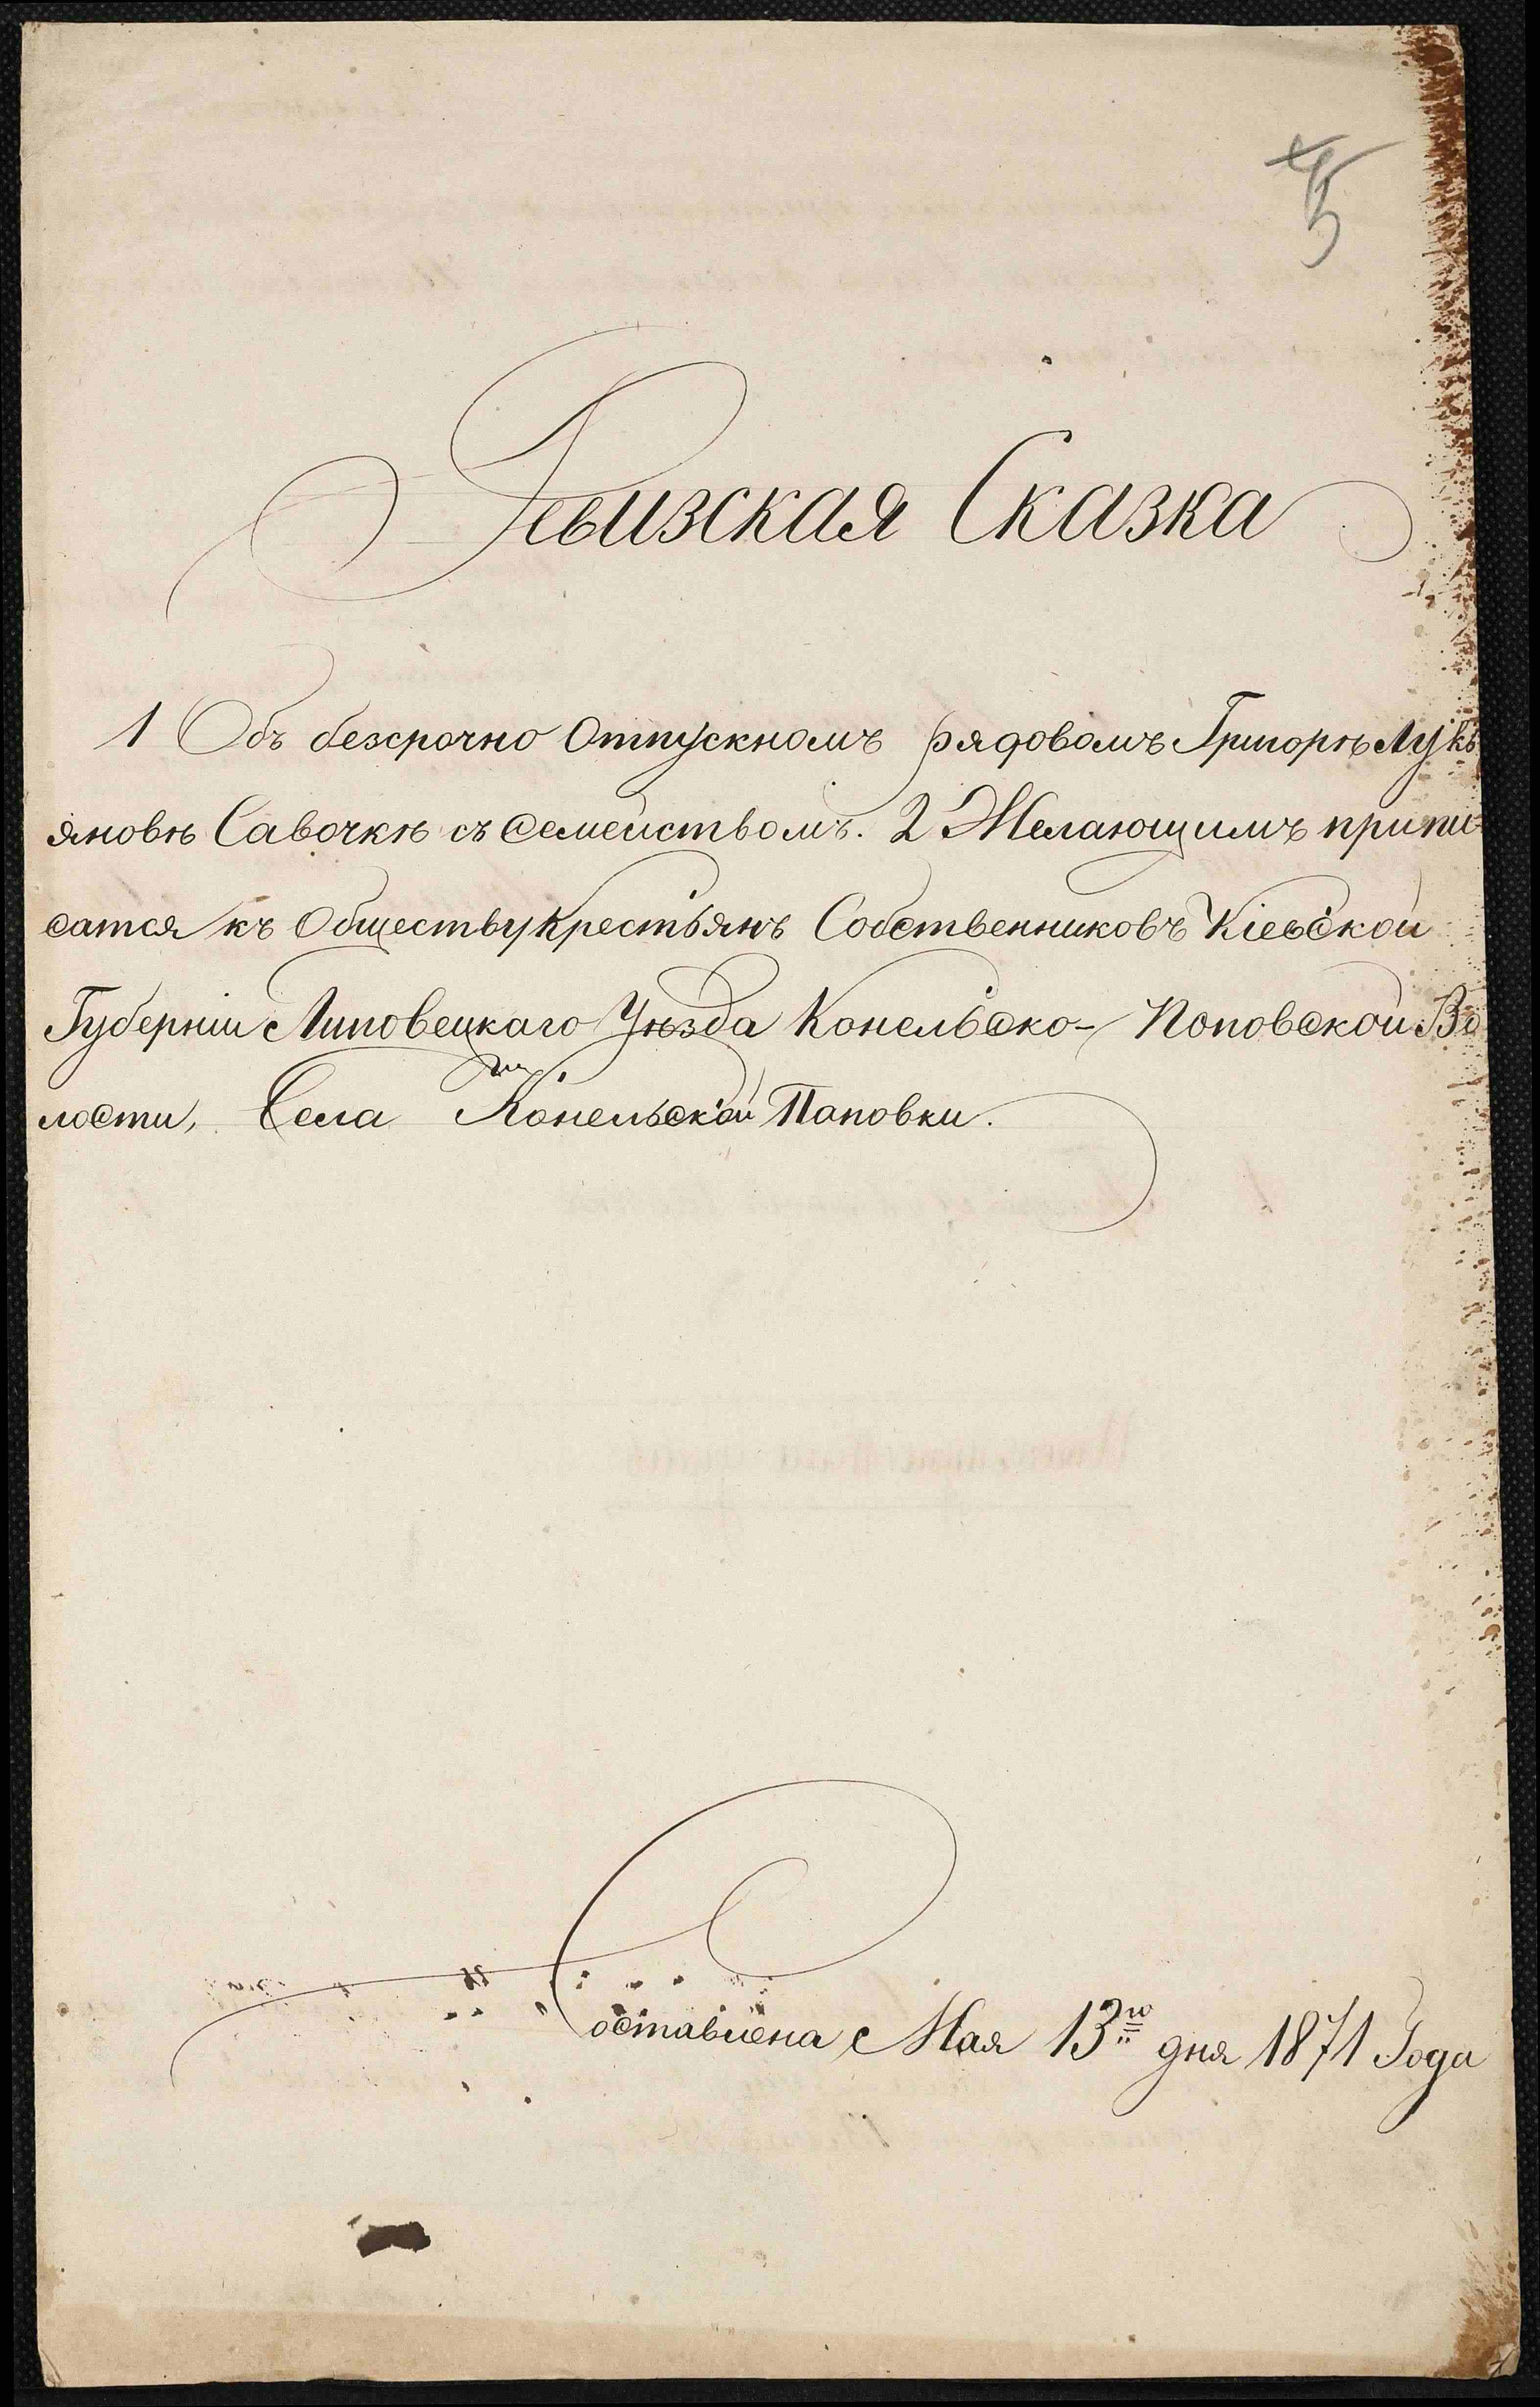 5
Ревизская Сказка
1 Объ безсрочно Отпускномъ рядовомъ Григорѣ Лукь
яновѣ Савочкѣ съ Семействомъ. 2 Желающимъ припи-
сатся къ Обществу Крестьянъ Собственниковъ Кіевской
Губерніи Липовецкаго Уѣзда Конельско- Поповской Во
лости, Села Конельской Паповки.
Составлена Мая 13го дня 1871 Года